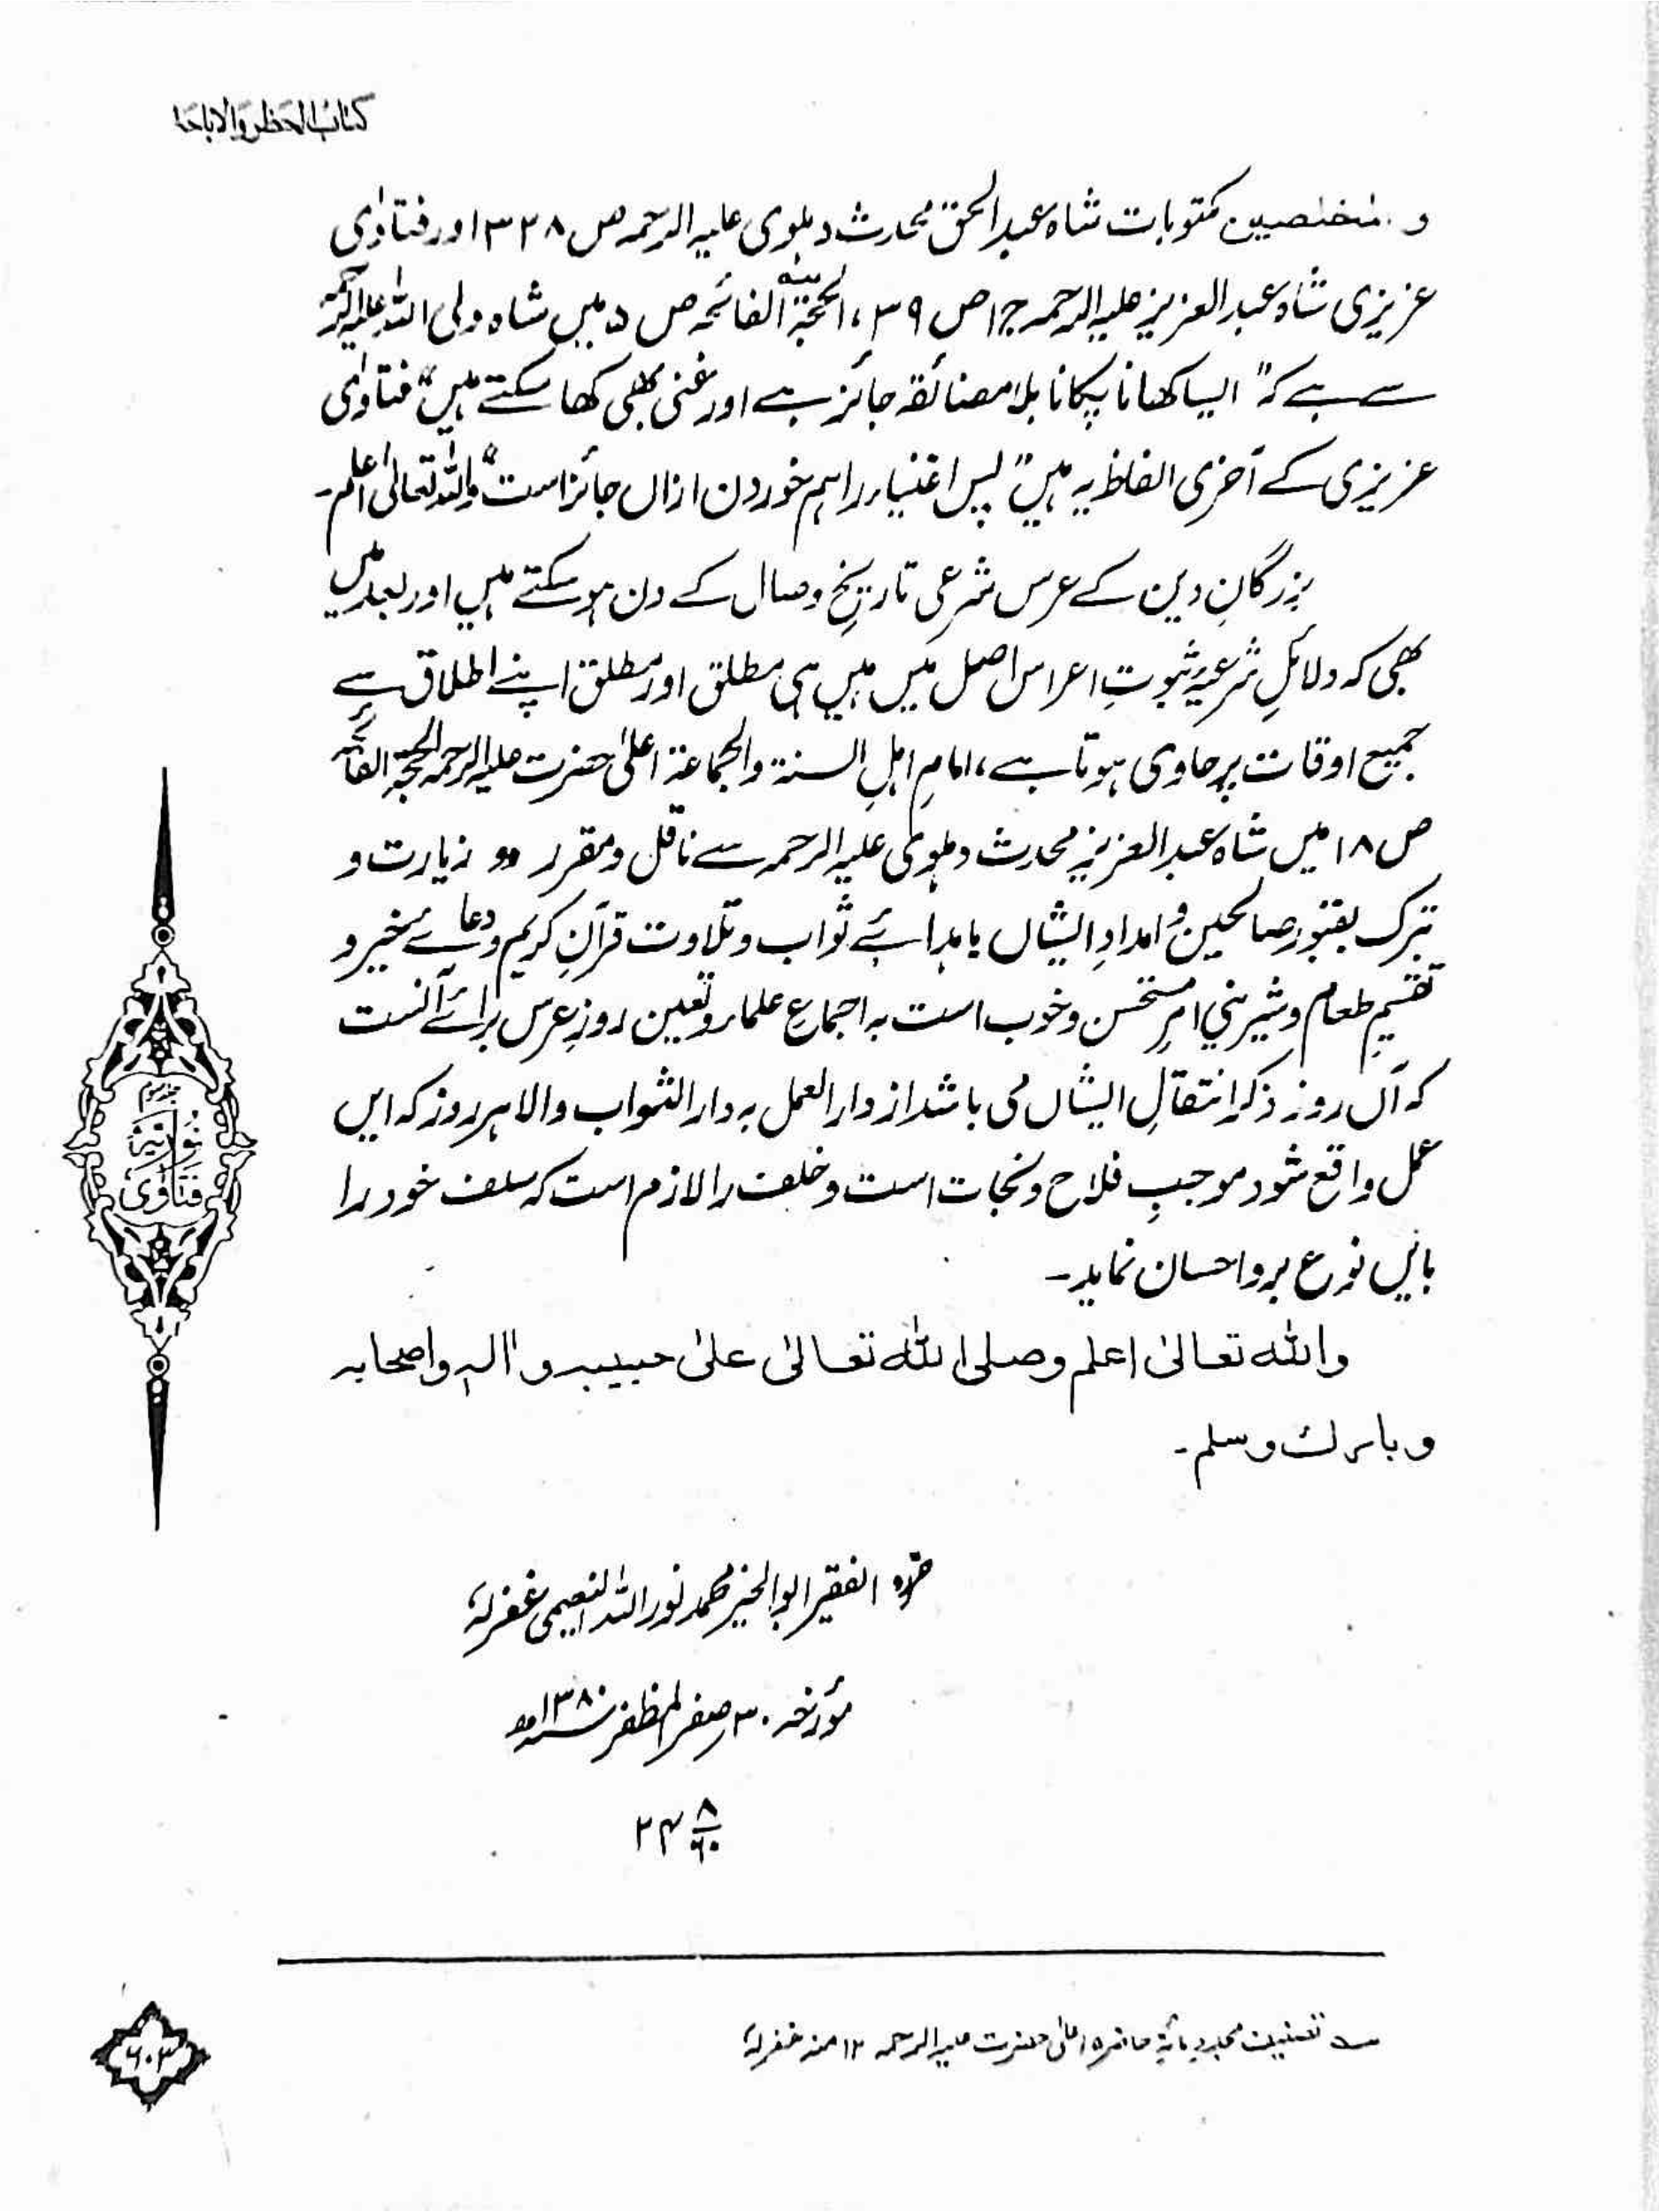 کتاب الحظر والاباحة
و مخلصین مکتوبات شاہ عبدالحق محدث دہلوی علیہ الرحمہ ص ۳۲۸ اور فتاوٰی
عزیزی شاہ عبدالعزیز علیہ الرحمہ ج ۱ ص ۳۹، الحجۃ الفائحہ ص ۵ میں شاہ ولی اللہ علیہ الرحمہ
سے ہے کہ ”ایسا کھانا پکانا بلا مضائقہ جائز ہے اور غنی بھی کھا سکتے ہیں“ فتاوٰی
عزیزی کے آخری الفاظ یہ ہیں ”پس اغنیاء را ہم خوردن ازاں جائز است“ واللہ تعالیٰ اعلم۔
بزرگانِ دین کے عرس شرعی تاریخِ وصال کے دن ہو سکتے ہیں اور بعد میں
بھی کہ دلائلِ شرعیہ ثبوتِ اعراس اصل میں ہیں ہی مطلق اور مطلق اپنے اطلاق سے
جمیع اوقات پر حاوی ہوتا ہے، امامِ اہلِ السنۃ والجماعۃ اعلیٰ حضرت علیہ الرحمہ الحجۃ الفائحہ
ص ۱۸ میں شاہ عبدالعزیز محدث دہلوی علیہ الرحمہ سے ناقل و مقرر ”زیارت و
تبرک بقبور صالحین و امدادِ ایشاں باہدائے ثواب و تلاوت قرآنِ کریم و دعائے خیر و
تقسیمِ طعام و شیرینی امرِ مستحسن و خوب است بہ اجماعِ علماء و تعین روزِ عرس برائے آنست
کہ آں روز ذکر انتقالِ ایشاں می باشد از دارالعمل بہ دارالثواب والا ہر روز کہ ایں
عمل واقع شود موجبِ فلاح و نجات است و خلف را لازم است کہ سلف خود را
بایں نوع بر و احسان نماید۔
واللہ تعالیٰ اعلم وصلی اللہ تعالیٰ علیٰ حبیبہ واٰلہٖ واصحابہ
وبارک وسلم۔
حررہ الفقیر ابوالخیر محمد نور اللہ النعیمی غفرلہٗ
مؤرخہ ۳۰ صفر المظفر سنہ ۱۳۸۰ھ
۲۴ ۸/۶۰
سوم
نُورِیَّہ
فَتَاوٰی
ے تصنیف مجدد مأتہ حاضرہ اعلیٰ حضرت علیہ الرحمہ ۱۲ منہ غفرلہٗ
۶۰۳